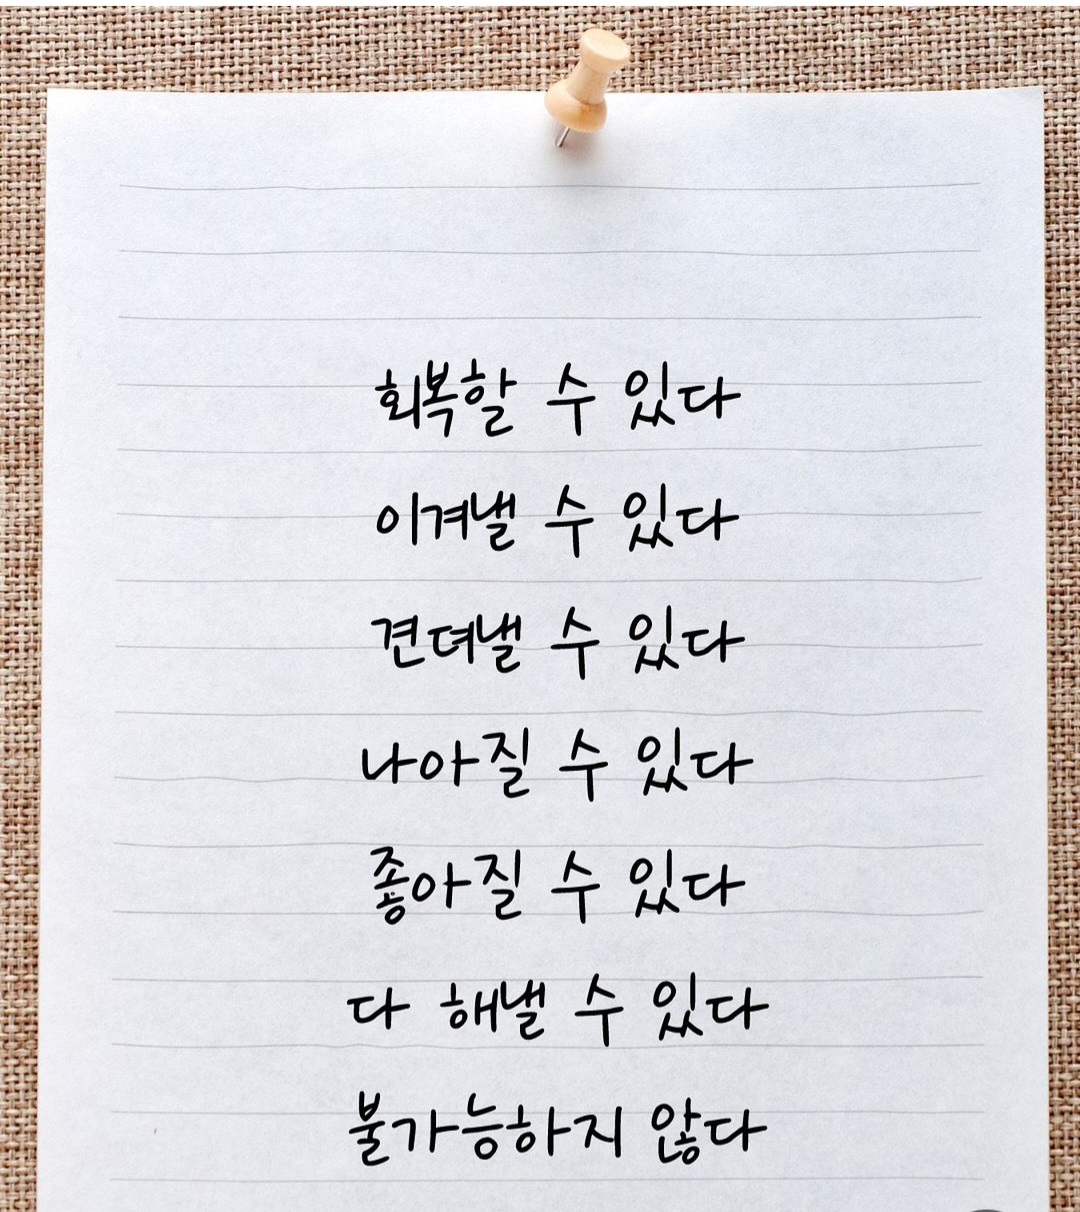 회복할 수 있다
이겨낼 수 있다
견뎌낼 수 있다
나아질 수 있다
좋아질 수 있다
다 해낼 수 있다
불가능하지 않다